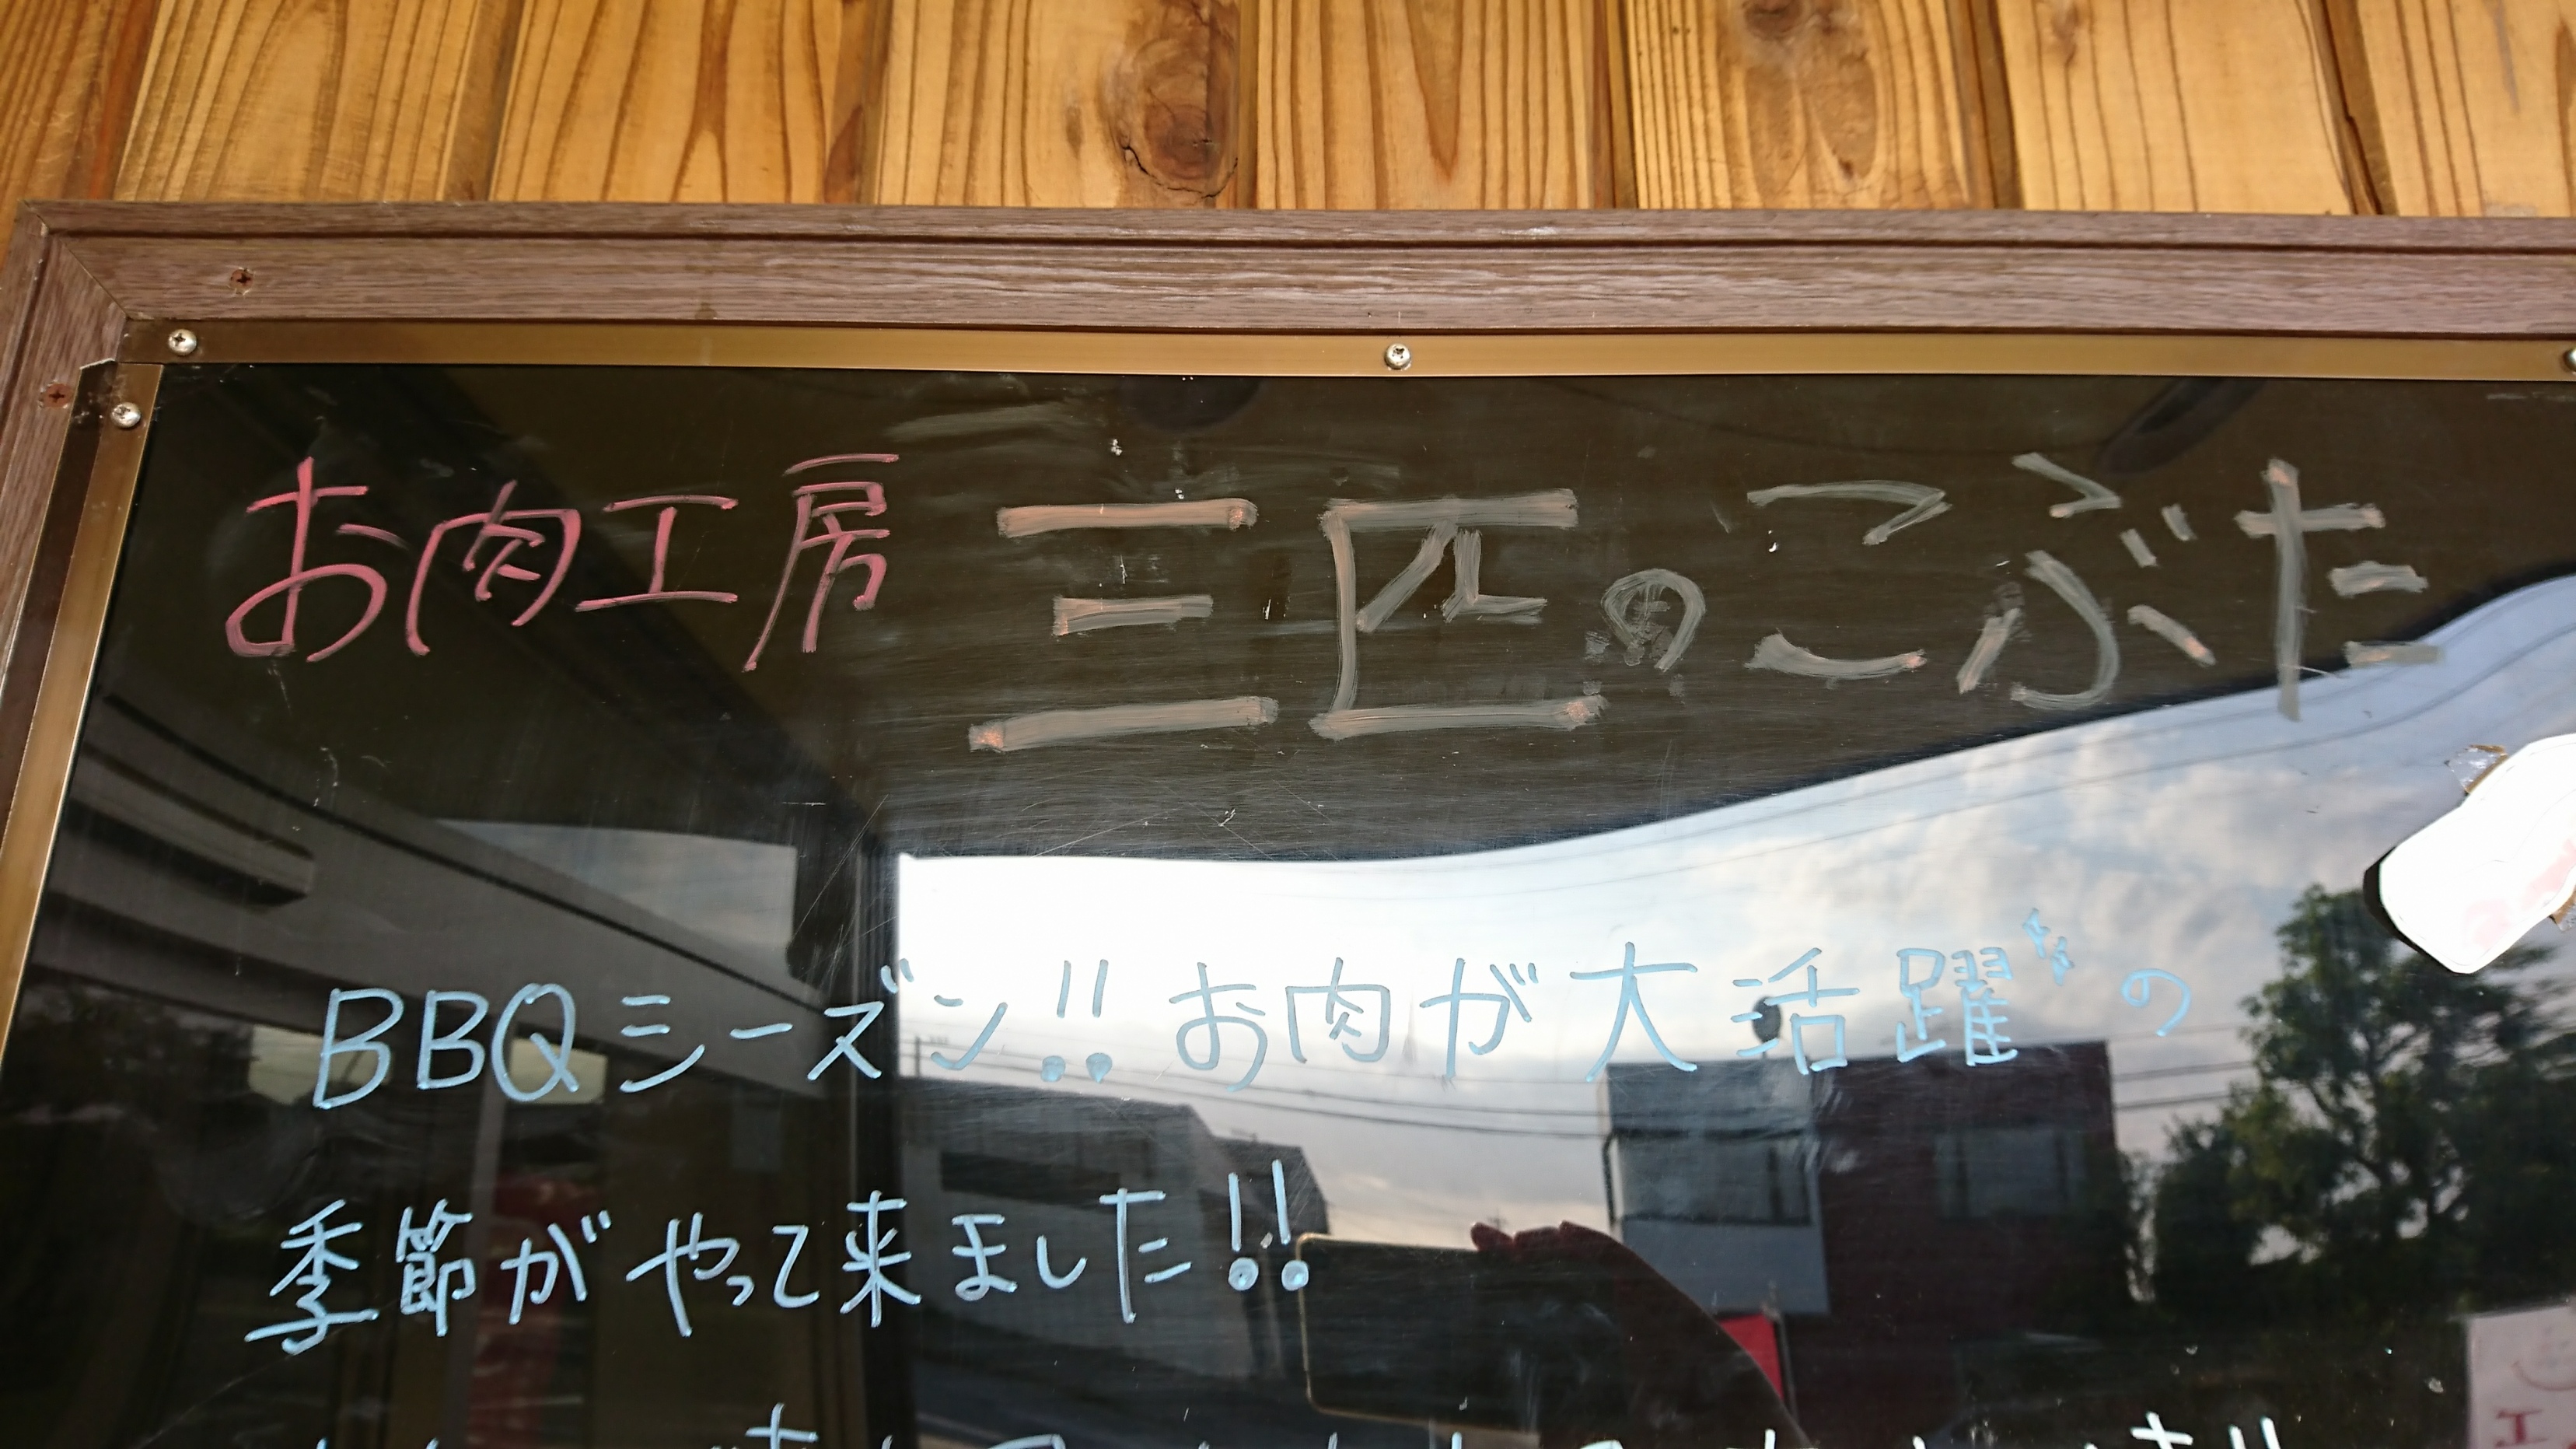 お肉工房 三匹のこぶた
BBQシーズン!! お肉が大活躍の
季節がやって来ました!!